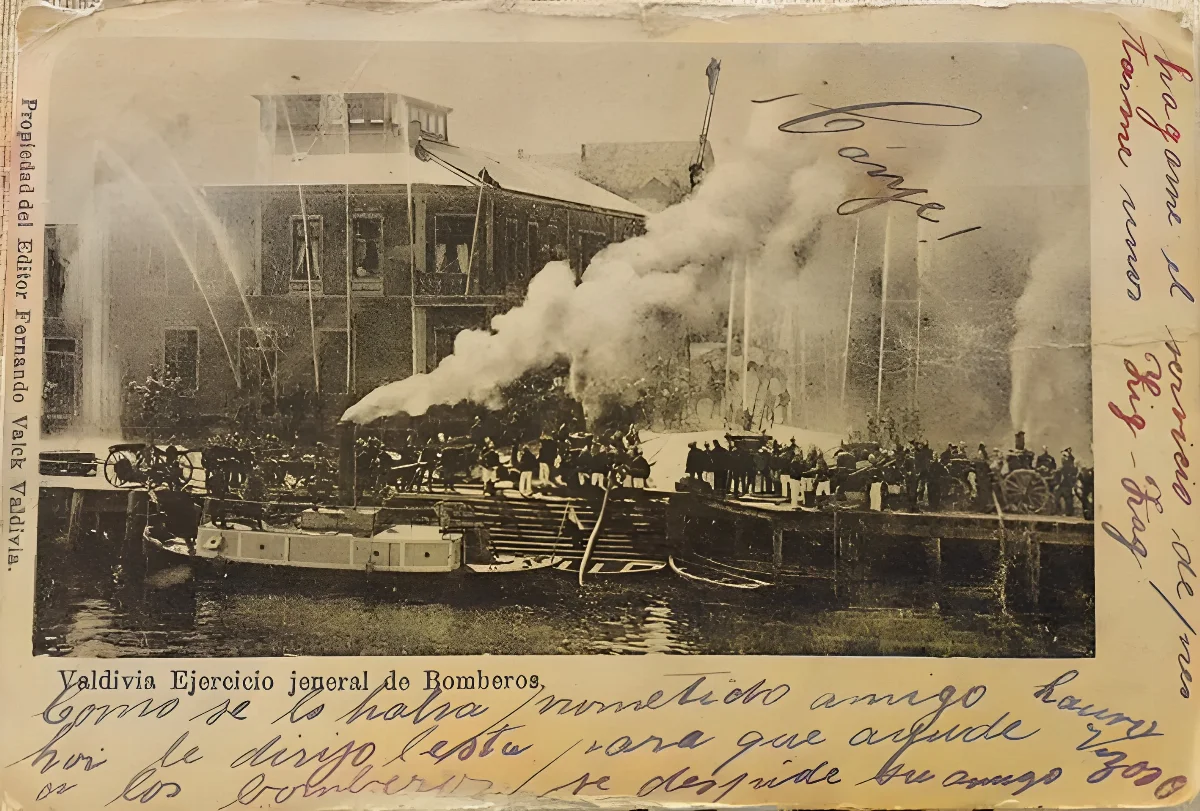 Propiedad del Editor Fernando Valck Valdivia.
Valdivia Ejercicio jeneral de Bomberos.
Como se lo habia prometido amigo Lauro
hoi le dirijo esta para que ayude
a los bomberos, se despide su amigo
hagame el servicio de pres
tarme unos Zig-Zag